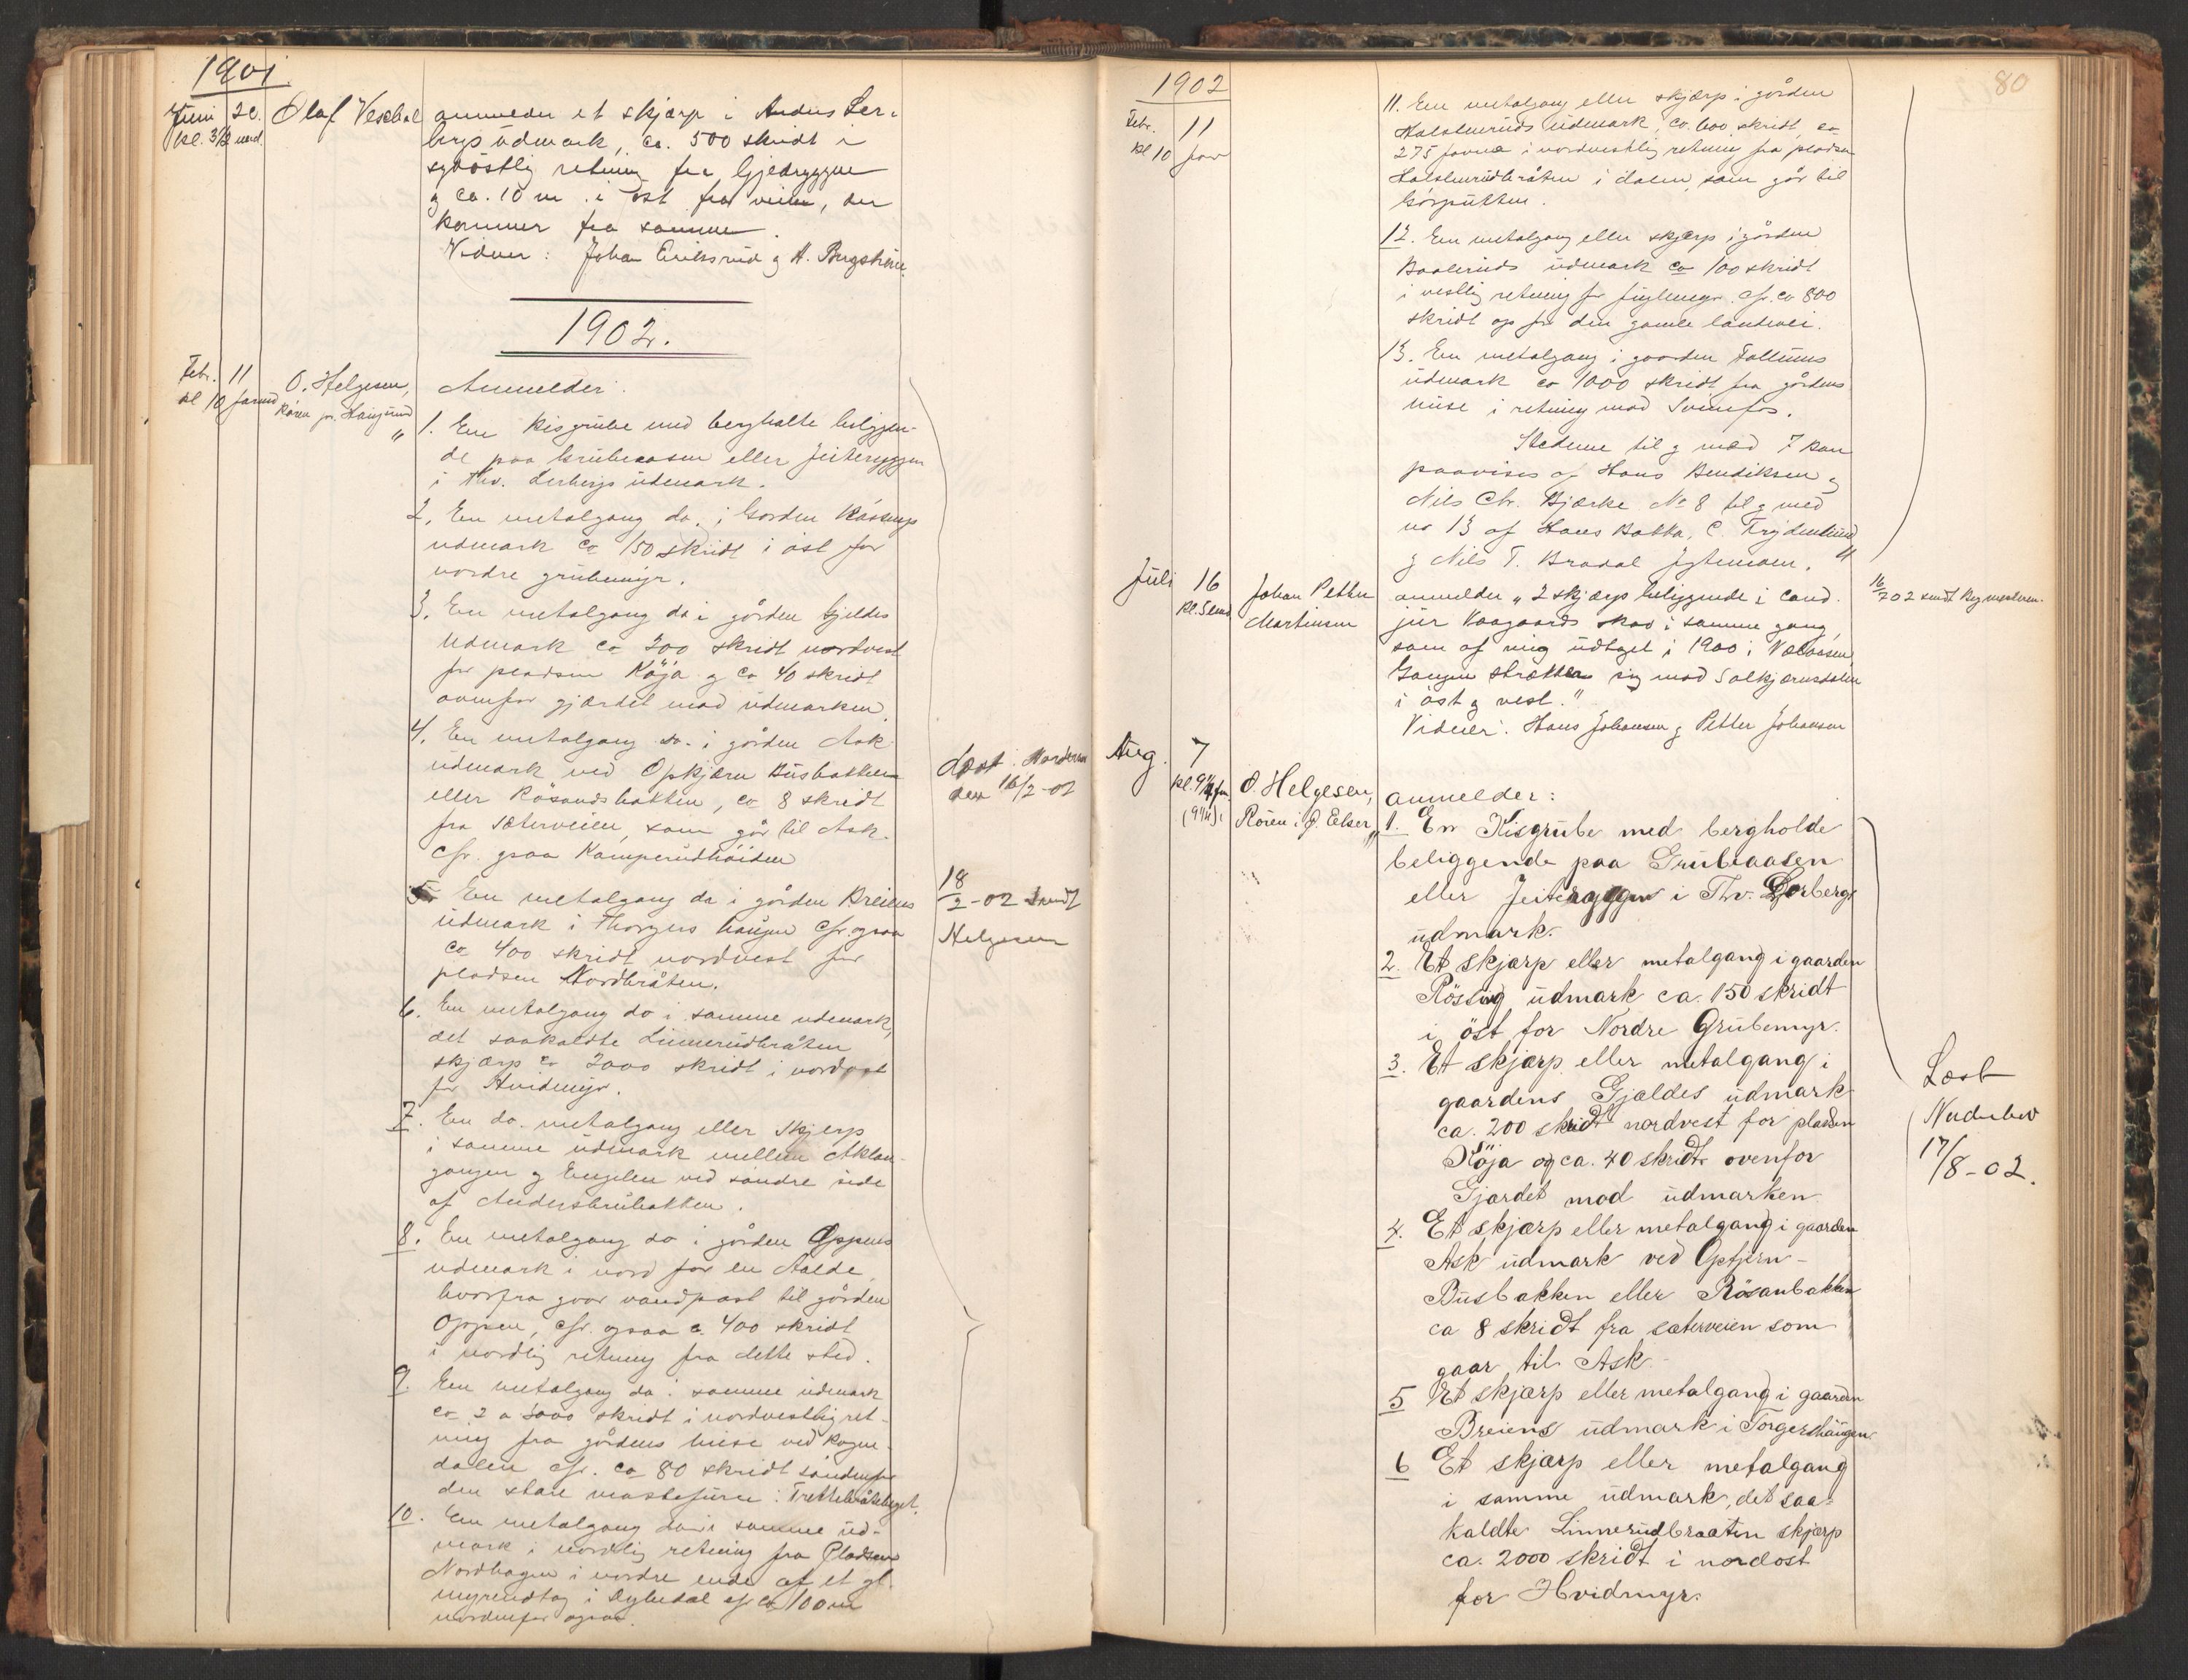 1901
Juni 20. Olaf anmelder et skjærp i Anders Ler-
kl. 3 1/2 bergs udmark, ca. 500 skridt i
sydöstlig retning fra Gjedryggen
og ca. 10 m. i öst fra veien, der
kommer fra samme.
Vidner: Johan Eriksrud og A. Bergström.
1902.
Febr. 11 O. Helgesen, Anmelder
kl 10 formd Rören pr. Haugsund
" 1. En kisgrube med berghalte beliggen-
de paa Grubeaasen eller Jeiteryggen
i Thv. Lerbergs udmark.
2. En metalgang do. i Gorden Rössings
udmark ca 150 skridt i öst for
nordre grubemyr.
3. En metalgang do i gården Gjeldes
udmark ca 200 skridt nordvest
for pladsen Köja og ca 40 skridt
ovenfor gjærdet mod udmarken.
4. En metalgang do. i gården Ask
udmark ved Opkjærn Busbakken
eller Rösandsbakken, ca 8 skridt
fra sæterveien, som går til Ask.
Cfr. gsaa Kamperudhöiden
5. En metalgang do i gården Breiens
udmark i Thorgers haugen cfr. ogsaa
ca 400 skridt nordvest for
pladsen Nordbråten.
6. En metalgang do i samme udmark,
det saakaldte Linnerudbråten
skjærp ca 2000 skridt i nordost
for Hvidmyr.
7. En do. metalgang eller skjerp
i samme udmark mellem Aklan-
gangen og Engelen ved söndre side
af Andersbrubakken.
8. En metalgang do i gården Oppens
udmark i nord for en Aalde,
hvorfra gaar vandpost til gården
Oppen, cfr. ogsaa ca. 400 skridt
i nordlig retning fra dette sted.
9. En metalgang do i samme udmark
ca 2 a 3000 skridt i nordvestlig ret-
ning fra gårdens huse ved Kogne-
dalen cfr. ca 80 skridt söndenfor
den store mastefuru i Trettebråteberget.
10. En metalgang do i samme ud-
mark i nordlig retning fra Pladsen
Nordhagen i nordre ende af et gl.
myrendtag i Dybedal cfr ca 100 m
nordenfor ogsaa.
Læst i Norderhov
den 16/2-02
18/2-02 sendt
Helgesen
1902
80
Febr. 11
kl 10 form
11. En metalgang eller skjærp i gården
Halstenruds udmark, ca. 600 skridt, ca
275 favne i nordvestlig retning fra pladsen
Halstenrudbråten i dalen, som går til
Görputten.
12. En metalgang eller skjærp i gården
Baaleruds udmark ca 100 skridt
i vestlig retning for fuglemyr. cfr. ca 800
skridt op for den gamle landevei.
13. En metalgang i gaarden Follums
udmark ca 1000 skridt fra gårdens
huse i retning mod Svinefos.
Stederne til og med 7 kan
paavises af Hans Bendiksen og
Nils Chr. Bjærke No 8 til og med
no 13 af Hans Bakka, C. Frydenlund
og Nils T. Bradal Jytemoen. "
Juli 16 Johan Petter anmelder „2 skjærp beliggende i cand.
kl. 5 Martinsen jur Vaagaards skov i samme gang,
som af mig udtaget i 1900 i Vælaasen.
Gangen strækker sig mod Salkjærnsdalen
i öst og vest."
Vidner: Hans Johansen og Petter Johansen
16/7 02 sendt
Aug. 7
kl. 9 1/4 fm. O. Helgesen, anmelder:
(9 1/4) Rören i Ö. Eker „1. En Kisgrube med bergholde
beliggende paa Grubeaasen
eller Jeiteryggen i Thv. Lerbergs
udmark.
2. Et skjærp eller metalgang i gaarden
Rössing udmark ca. 150 skridt
i öst for Nordre Grubemyr.
3. Et skjærp eller metalgang i
gaardens Gjældes udmark
ca. 200 skridt nordvest for pladsen
Köja og ca. 40 skridt ovenfor
Gjærdet mod udmarken.
4. Et skjærp eller metalgang i gaarden
Ask udmark ved Optjern-
Busbakken eller Rösanbakken
ca 8 skridt fra sæterveien som
gaar til Ask.
5 Et skjærp eller metalgang i gaarden
Breiens udmark i Torgershaugen.
6 Et skjærp eller metalgang
i samme udmark, det saa-
kaldte Linnerudbraaten skjærp
ca. 2000 skridt i nordost
for Hvidmyr.
Læst
Norderhov
17/8-02.